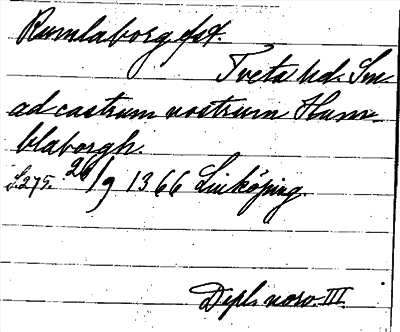 Rumlaborg fst.
Tveta hd. Sm
ad castrum nostrum Hum-
blaborgh.
S. 275. 26/9 1366 Linköping.
Dipl. norv. III